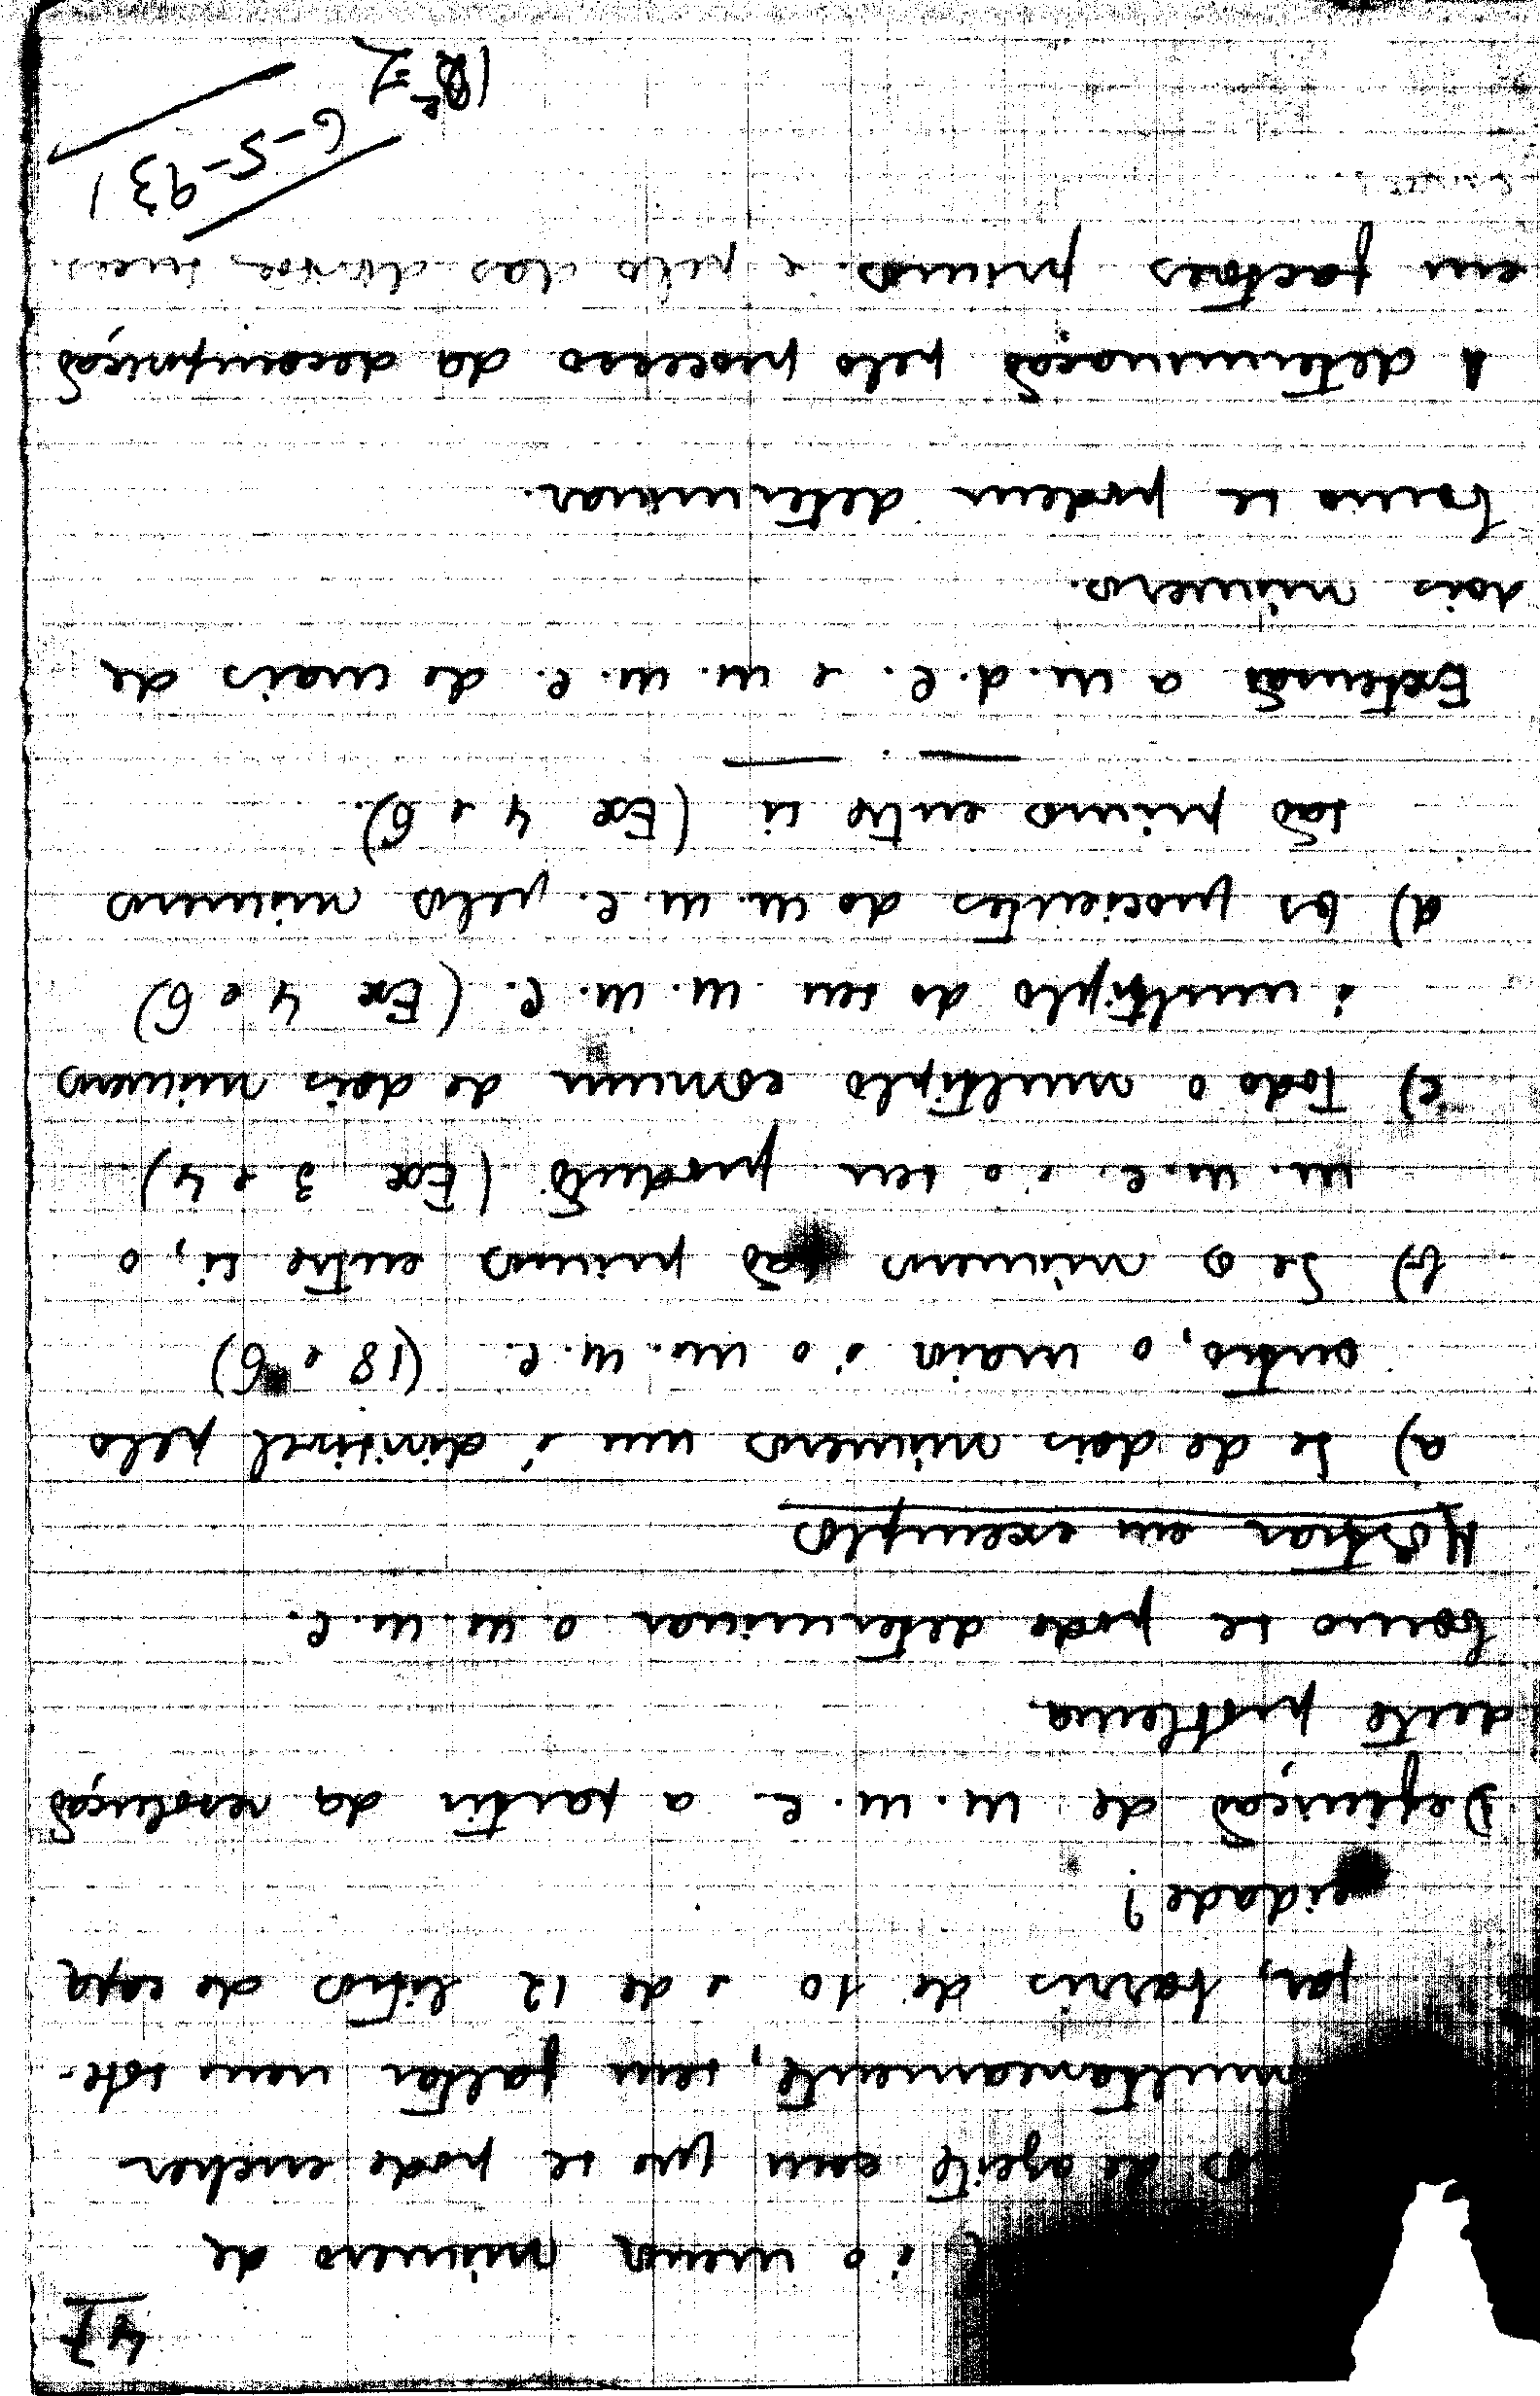 47
é o menor número de
de azeite com que se pode encher
simultaneamente, sem faltar nem sobe-
jar, barris de 10 e de 12 litros de capa
cidade?
Definição de m. m. c. a partir da resolução
deste problema.
Como se pode determinar o m. m. c.
Mostrar em exemplos
a) Se de dois números um é divisivel pelo
outro, o maior é o m. m. c. (18 e 6)
b) Se os números são primos entre si, o
m. m. c. é o seu producto (Ex 3 e 4)
c) Todo o multiplo comum de dois números
é multiplo do seu m. m. c. (Ex 4 e 6)
d) Os quocientes do m. m. c. pelos números
são primos entre si (Ex 4 e 6).
Extensão a m. d. c. e m. m. c. de mais de
dois números.
Como se podem determinar.
A determinação pelo processo da decomposição
em factores primos e pelo das
6-5-931